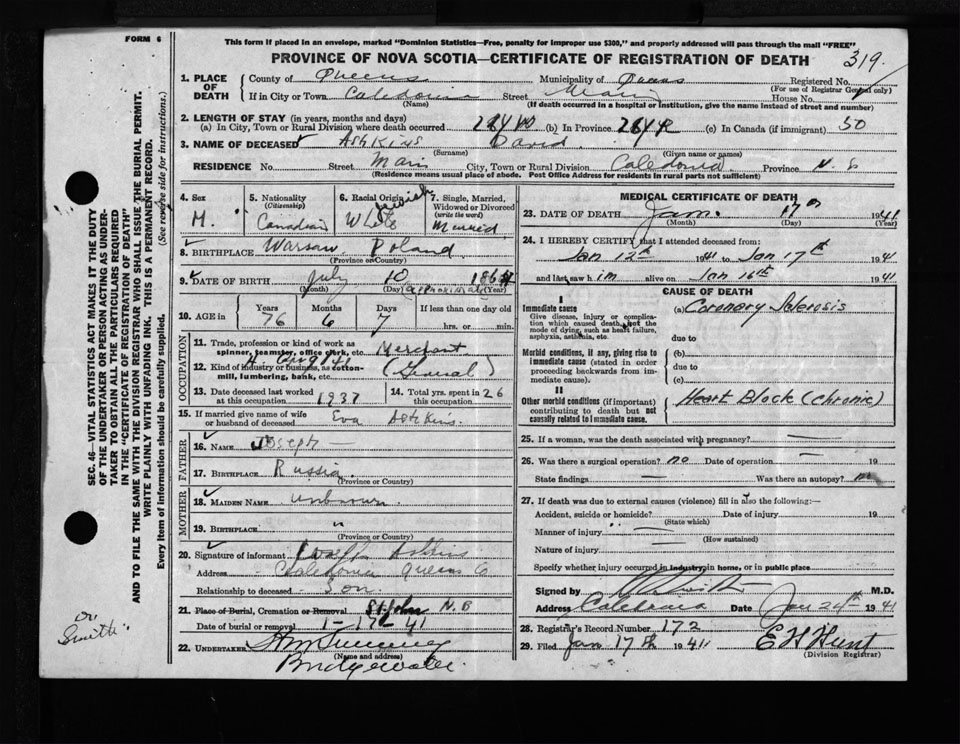 FORM 6
This form if placed in an envelope, marked "Dominion Statistics—Free, penalty for improper use $300," and properly addressed will pass through the mail "FREE"
PROVINCE OF NOVA SCOTIA—CERTIFICATE OF REGISTRATION OF DEATH
319.
1. PLACE OF DEATH County of Queens Municipality of Queens Registered No.
(For use of Registrar General only)
If in City or Town Caledonia Street Main House No.
(Name) (If death occurred in a hospital or institution, give the name instead of street and number)
2. LENGTH OF STAY (in years, months and days)
(a) In City, Town or Rural Division where death occurred (b) In Province (c) In Canada (if immigrant) 50
3. NAME OF DECEASED Ashkins David
(Surname) (Given name or names)
RESIDENCE No. Street Main City, Town or Rural Division Caledonia Province N. S
(Residence means usual place of abode. Post Office Address for residents in rural parts not sufficient)
4. Sex M.
5. Nationality (Citizenship) Canadian
6. Racial Origin White
7. Single, Married, Widowed or Divorced (write the word) Married
8. BIRTHPLACE Warsaw Poland
(Province or Country)
9. DATE OF BIRTH July 10 1864
(Month) (Day) Approximate (Year)
10. AGE in Years Months Days If less than one day old
76 6 7 hrs. or min.
OCCUPATION
11. Trade, profession or kind of work as spinner, teamster, office clerk, etc. Merchant
12. Kind of industry or business, as cotton-mill, lumbering, bank, etc. (General)
13. Date deceased last worked at this occupation 1937
14. Total yrs. spent in this occupation 26
15. If married give name of wife or husband of deceased Eva Ashkins
FATHER
16. NAME Joseph —
17. BIRTHPLACE Russia
(Province or Country)
MOTHER
18. MAIDEN NAME unknown
19. BIRTHPLACE "
(Province or Country)
20. Signature of informant
Address Caledonia Queens Co
Relationship to deceased Son
21. Place of Burial, Cremation or Removal St John N.B
Date of burial or removal 1-17th 41
22. UNDERTAKER
(Name and address)
Bridgewater
MEDICAL CERTIFICATE OF DEATH
23. DATE OF DEATH Jan. 17th 1941
(Month) (Day) (Year)
24. I HEREBY CERTIFY that I attended deceased from:
Jan 12th 1941 to Jan 17th 1941
and last saw him alive on Jan 16th 1941
CAUSE OF DEATH
Immediate cause
Give disease, injury or complication which caused death, not the mode of dying, such as heart failure, asphyxia, asthenia, etc.
(a) Coronary Sclerosis
due to
Morbid conditions, if any, giving rise to immediate cause (stated in order proceeding backwards from immediate cause).
(b)
due to
(c)
II
Other morbid conditions (if important) contributing to death but not causally related to immediate cause.
Heart Block (chronic)
25. If a woman, was the death associated with pregnancy? —
26. Was there a surgical operation? no Date of operation — 19
State findings — Was there an autopsy? no
27. If death was due to external causes (violence) fill in also the following:—
Accident, suicide or homicide? Date of injury 19
(State which)
Manner of injury
(How sustained)
Nature of injury
Specify whether injury occurred in industry, in home, or in public place
Signed by M.D.
Address Caledonia Date Jan 24th 1941
28. Registrar's Record Number 172
29. Filed Jan 17th 1941 E H Hunt
(Division Registrar)
SEC. 46—VITAL STATISTICS ACT MAKES IT THE DUTY
OF THE UNDERTAKER OR PERSON ACTING AS UNDERTAKER TO OBTAIN ALL THE PARTICULARS REQUIRED
IN THE "CERTIFICATE OF REGISTRATION OF DEATH"
AND TO FILE THE SAME WITH THE DIVISION REGISTRAR WHO SHALL ISSUE THE BURIAL PERMIT.
WRITE PLAINLY WITH UNFADING INK. THIS IS A PERMANENT RECORD.
Every item of information should be carefully supplied. (See reverse side for instructions.)
Dr
Smith